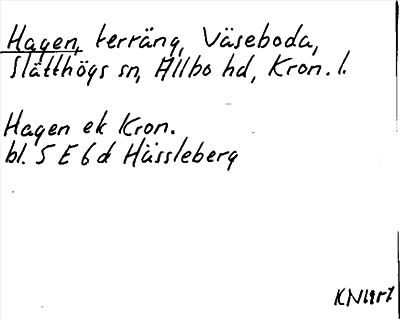 Hagen, terräng, Väseboda,
Slätthögs sn, Allbo hd, Kron. l.
Hagen ek Kron.
bl. 5 E 6 d Hässleberg